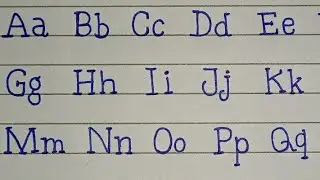 Aa Bb Cc Dd Ee
Gg Hh Ii Jj Kk
Mm Nn Oo Pp Qq